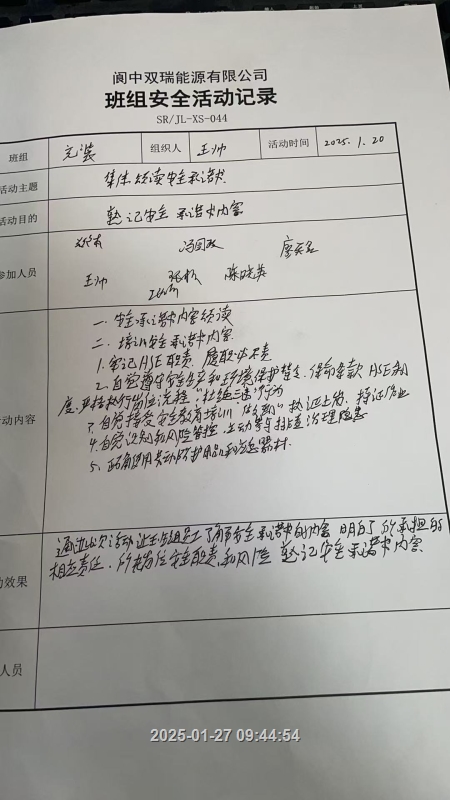 阆中双瑞能源有限公司
班组安全活动记录
SR/JL-XS-044
班组 充装 组织人 王帅 活动时间 2025.1.20
活动主题 集体领读安全承诺书
活动目的 熟记安全承诺书内容
参加人员 冯国政
王帅 陈晓英
动内容
一、安全承诺书内容领读
二、培训安全承诺书内容
1.牢记HSE职责,履职尽责
2.自觉遵守安全生产和环境保护禁令、保命条款、HSE制
度,严格执行岗位流程,杜绝"三违"行为
3.自觉接受安全教育培训 执证上岗、持证作业
4.自觉识别和风险管控,主动参与排查治理隐患
5、正确使用劳动防护用品和应急器材.
动效果
通过此次活动让班组员工了解了安全承诺书的内容 明白了所承担的
相应责任、所在岗位安全职责、和风险 熟记安全承诺书内容
人员
2025-01-27 09:44:54